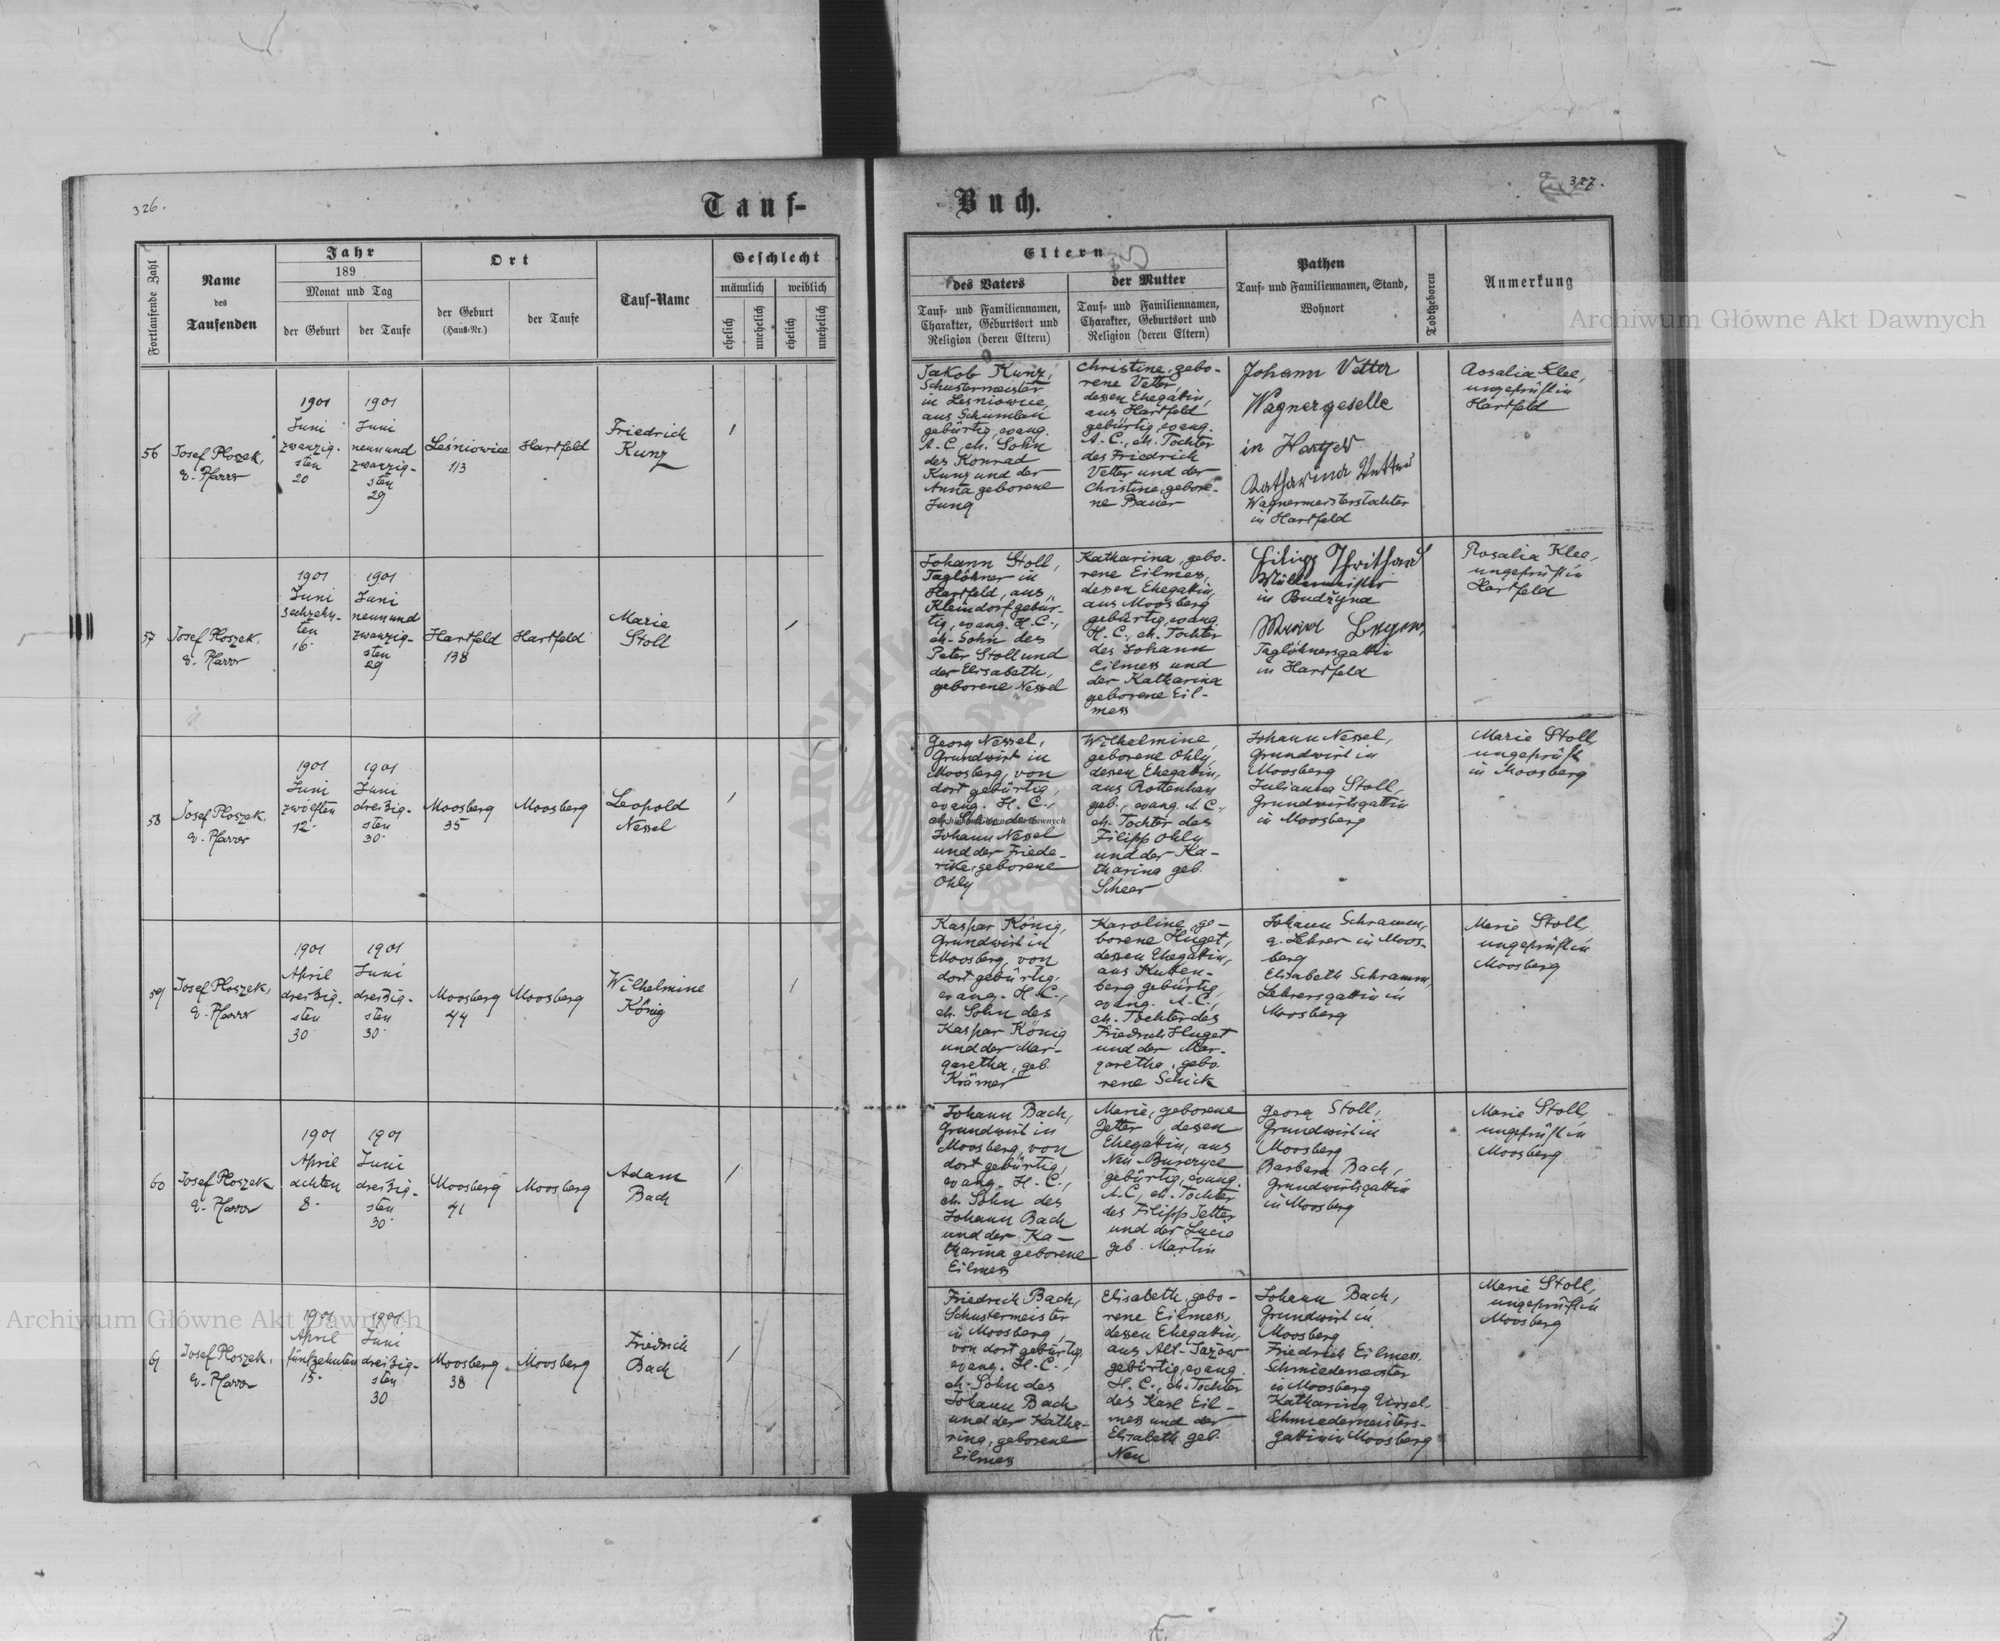 326.
Tauf-
Buch.
327.
Fortlaufende Zahl
Name
des
Taufenden
Jahr
189
Monat und Tag
der Geburt
der Taufe
Ort
der Geburt
(Haus-Nr.)
der Taufe
Tauf-Name
Geschlecht
männlich
weiblich
ehelich
unehelich
ehelich
unehelich
Eltern
des Vaters
Tauf- und Familiennamen,
Charakter, Geburtsort und
Religion (deren Eltern)
der Mutter
Tauf- und Familiennamen,
Charakter, Geburtsort und
Religion (deren Eltern)
Pathen
Tauf- und Familiennamen, Stand,
Wohnort
Todtgeboren
Anmerkung
Archiwum Główne Akt Dawnych
56
Josef Ploszek,
e. Pfarrer
1901
Juni
zwanzig-
sten
20
1901
Juni
neunund
zwanzig-
sten
29
Leśniowice
113
Hartfeld
Friedrich
Kunz
Jakob Kunz,
Schustermeister
in Leśniowice,
aus Schumlau
gebürtig, evang.
A. C., eh. Sohn
des Konrad
Kunz und der
Anna geborene
Jung
Christine, gebo-
rene Vetter,
dessen Ehegattin,
aus Hartfeld
gebürtig, evang.
A. C., eh. Tochter
des Friedrich
Vetter und der
Christine, gebore-
ne Bauer
Johann Vetter
Wagnergeselle
in Hartfeld
Katharina Vetter
Wagnermeisterstochter
in Hartfeld
Rosalia Klee,
ungeprüft in
Hartfeld
57
Josef Ploszek,
e. Pfarrer
1901
Juni
sechzehn-
ten
16.
1901
Juni
neunund
zwanzig-
sten
29
Hartfeld
138
Hartfeld
Marie
Stoll
Johann Stoll,
Taglöhner in
Hartfeld, aus
Kleindorf gebür-
tig, evang. H. C.,
eh. Sohn des
Peter Stoll und
der Elisabeth,
geborene Nessel
Katharina, gebo-
rene Eilmess,
dessen Ehegattin,
aus Moosberg
gebürtig, evang.
H. C., eh. Tochter
des Johann
Eilmess und
der Katharina
geborene Eil-
mess
Müllermeister
in Budżyna
Taglöhnersgattin
in Hartfeld
Rosalia Klee,
ungeprüft in
Hartfeld
58
Josef Ploszek,
e. Pfarrer
1901
Juni
zwölften
12.
1901
Juni
dreißig-
sten
30.
Moosberg
35
Moosberg
Leopold
Nessel
Georg Nessel,
Grundwirt in
Moosberg, von
dort gebürtig,
evang. H. C.,
eh. Sohn des
Johann Nessel
und der Friede-
rike, geborene
Ohly
Wilhelmine,
geborene Ohly,
dessen Ehegattin,
aus Rottenhan
geb., evang. A. C.,
eh. Tochter des
Filipp Ohly
und der Ka-
tharina geb.
Scheer
Johann Nessel,
Grundwirt in
Moosberg
Julianna Stoll,
Grundwirtsgattin
in Moosberg
Marie Stoll,
ungeprüft
in Moosberg
59
Josef Ploszek,
e. Pfarrer
1901
April
dreißig-
sten
30.
1901
Juni
dreißig-
sten
30.
Moosberg
44
Moosberg
Wilhelmine
König
Kaspar König,
Grundwirt in
Moosberg, von
dort gebürtig,
evang. H. C.,
eh. Sohn des
Kaspar König
und der Mar-
garetha, geb.
Krämer
Karoline, ge-
borene Huget,
dessen Ehegattin,
aus Kutten-
berg gebürtig,
evang. A. C.,
eh. Tochter des
Friedrich Huget
und der Mar-
garetha, gebo-
rene Schick
Johann Schramm,
g. Lehrer in Moos-
berg
Elisabeth Schramm,
Lehrersgattin in
Moosberg
Marie Stoll,
ungeprüft in
Moosberg
60
Josef Ploszek
e. Pfarrer
1901
April
achten
8.
1901
Juni
dreißig-
sten
30.
Moosberg
41
Moosberg
Adam
Bach
Johann Bach,
Grundwirt in
Moosberg, von
dort gebürtig,
evang. H. C.,
eh. Sohn des
Johann Bach
und der Ka-
tharina geborene
Eilmess
Marie, geborene
Jetter, dessen
Ehegattin, aus
Neu-Burczyce
gebürtig, evang.
A. C., eh. Tochter
des Filipp Jetter
und der Lucie
geb. Martin
Georg Stoll,
Grundwirt in
Moosberg
Barbara Bach,
Grundwirtsgattin
in Moosberg
Marie Stoll,
ungeprüft in
Moosberg
61
Josef Ploszek,
e. Pfarrer
1901
April
fünfzehnten
15.
1901
Juni
dreißig-
sten
30
Moosberg
38
Moosberg
Friedrich
Bach
Friedrich Bach,
Schustermeister
in Moosberg,
von dort gebürtig,
evang. H. C.,
eh. Sohn des
Johann Bach
und der Katha-
rina, geborene
Eilmess
Elisabeth, gebo-
rene Eilmess,
dessen Ehegattin,
aus Alt-Jazow
gebürtig, evang.
H. C., eh. Tochter
des Karl Eil-
mess und der
Elisabeth geb.
Neu
Johann Bach,
Grundwirt in
Moosberg
Friedrich Eilmess,
Schmiedemeister
in Moosberg
Katharina Ursel,
Schmiedemeisters-
gattin in Moosberg
Marie Stoll,
ungeprüft in
Moosberg
Archiwum Główne Akt Dawnych